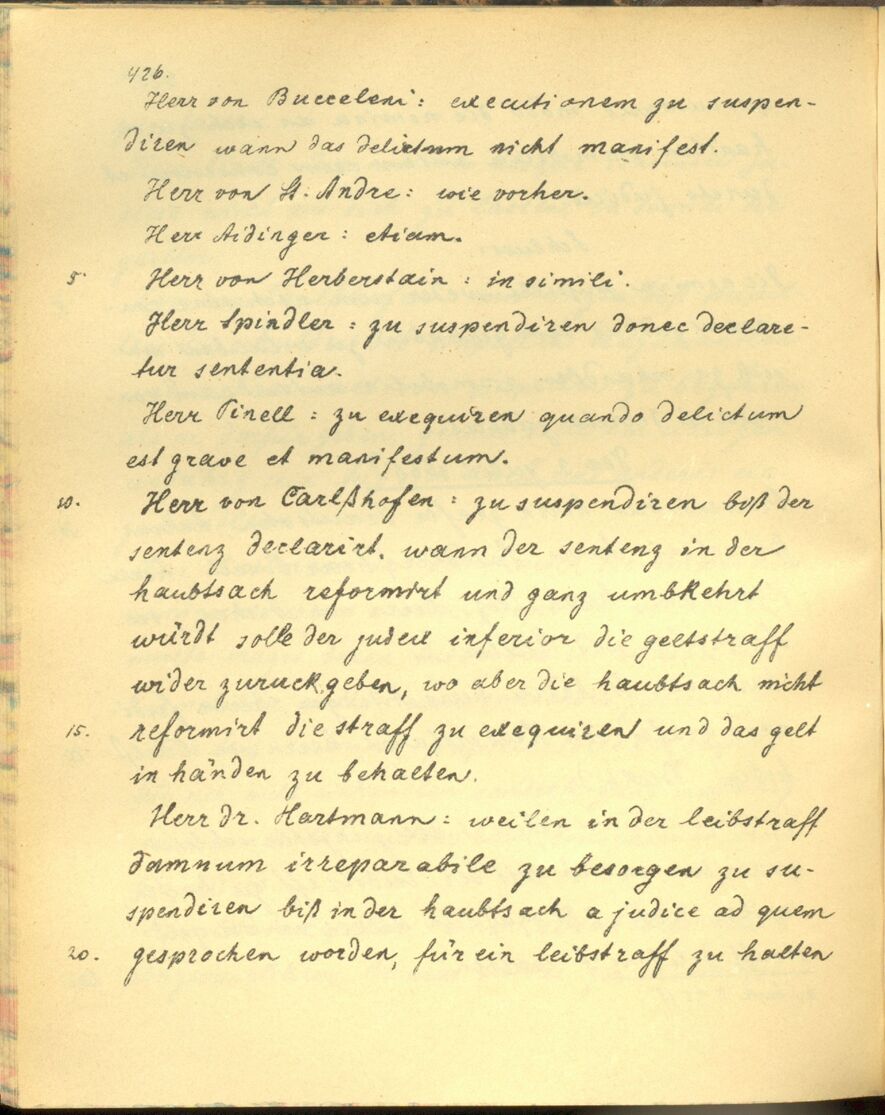 426.
Herr von Bucceleni: executionem zu suspen-
diren wann das delictum nicht manifest.
Herr von St. Andre: wie vorher.
Herr Aidinger: etiam.
5. Herr von Herberstain: in simili.
Herr Spindler: zu suspendiren donec declare-
tur sententia.
Herr Pinell: zu exequiren quando delictum
est grave et manifestum.
10. Herr von Carlßhofen: zu suspendiren biß der
sentenz declarirt. wann der sentenz in der
haubtsach reformirt und ganz umbkehrt
würdt solle der judex inferior die geltstraff
wider zuruck geben, wo aber die haubtsach nicht
15. reformirt die straff zu exequiren und das gelt
in händen zu behalten.
Herr dr. Hartmann: weilen in der leibstraff
damnum irreparabile zu besorgen zu su-
spendiren biß in der haubtsach a judice ad quem
20. gesprochen worden, für ein leibstraff zu halten